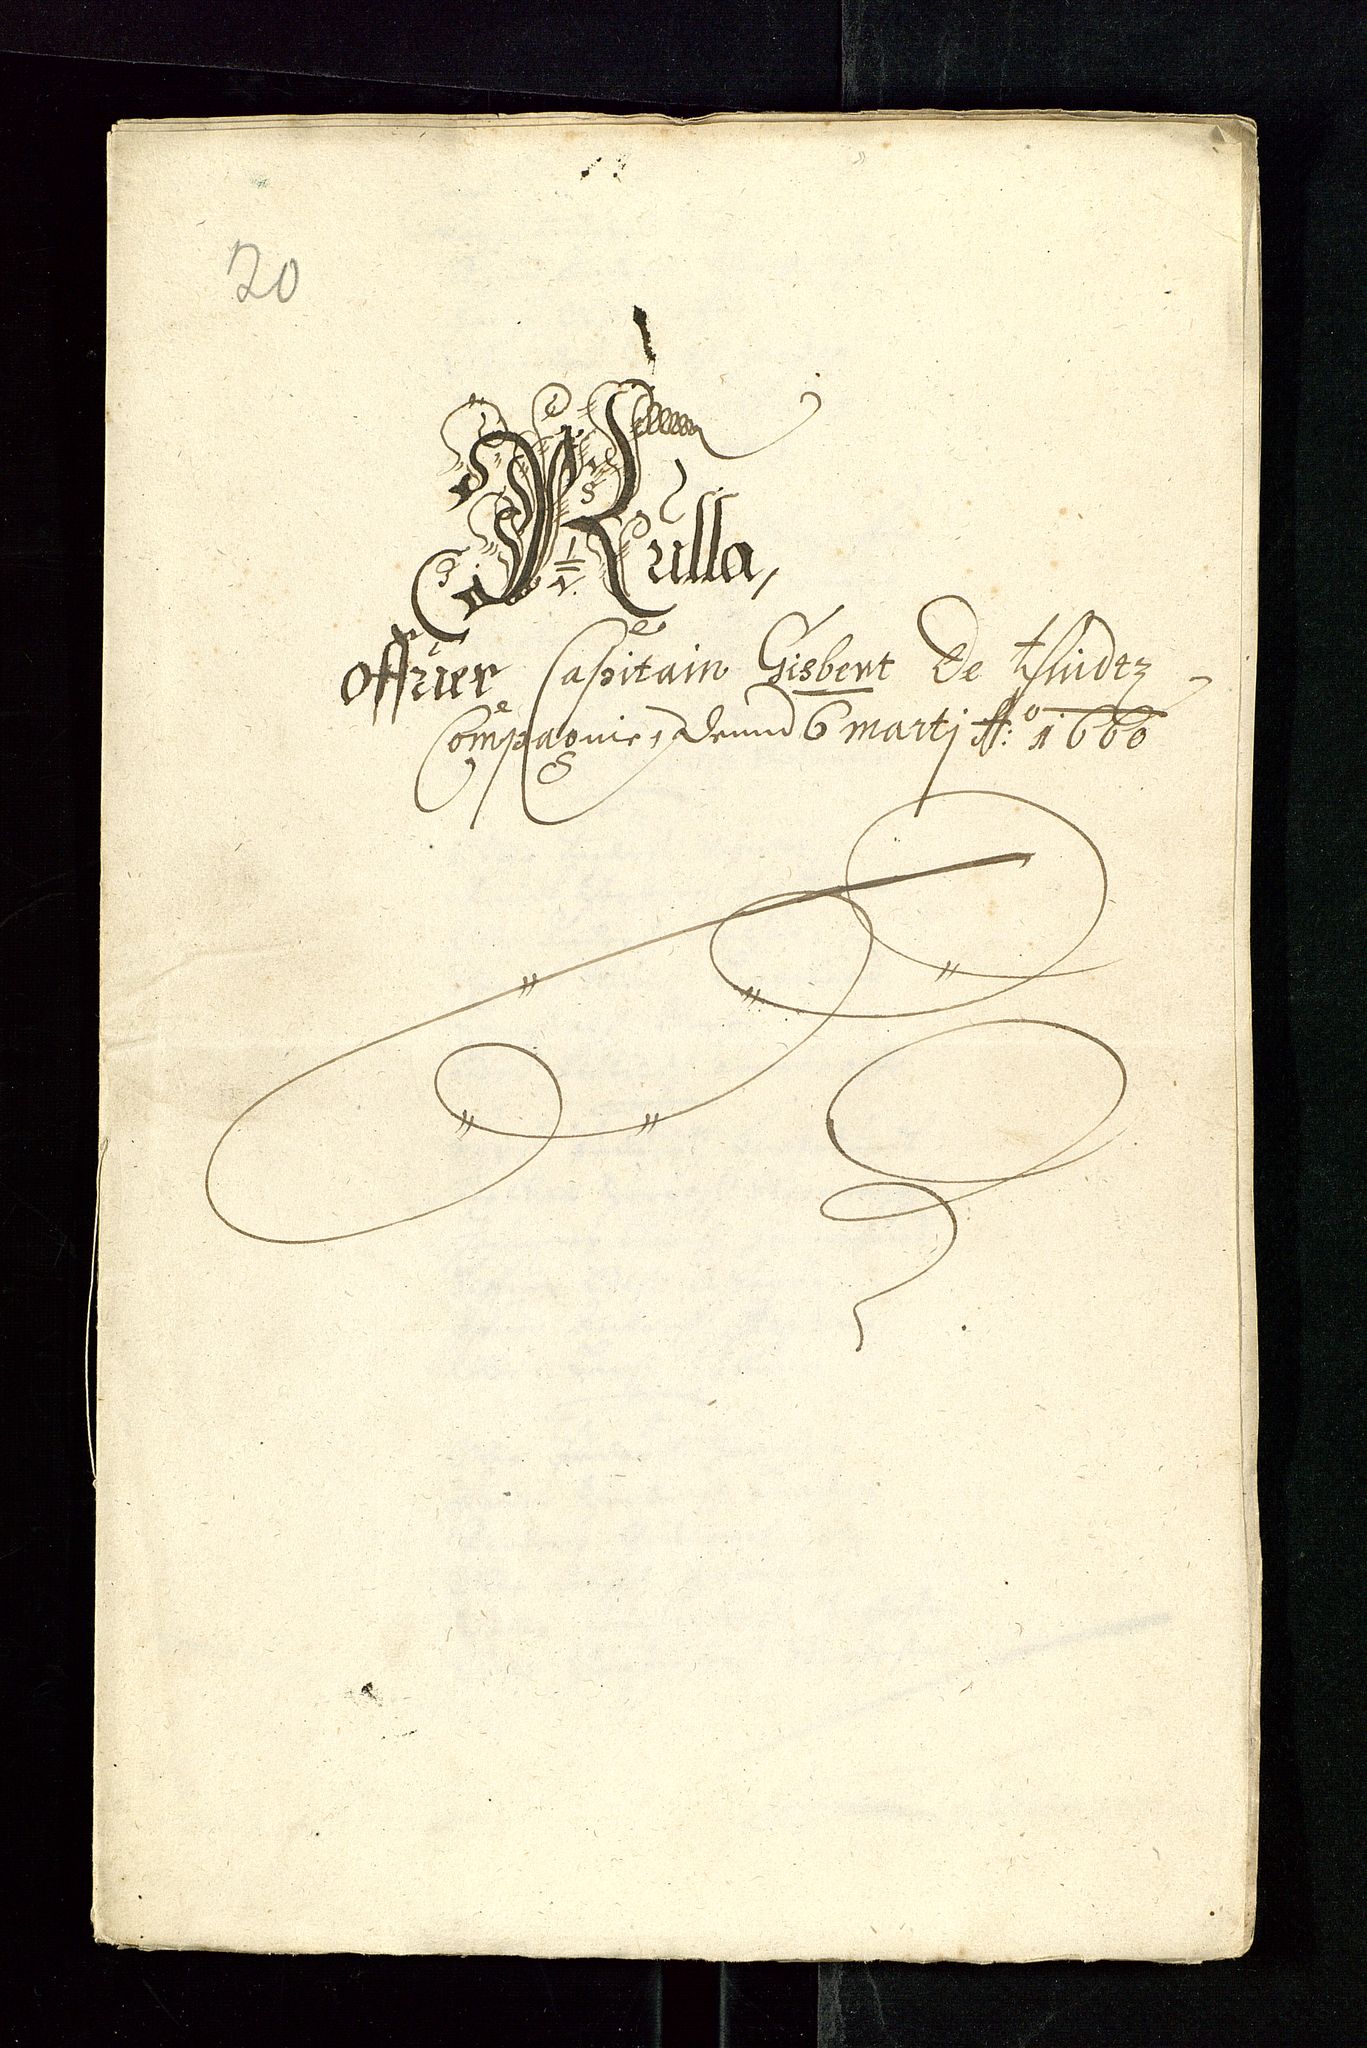 20
Rulla,
offuer Capitain Gisbert De
Compagnie, dennd 6 martj Ao: 1660